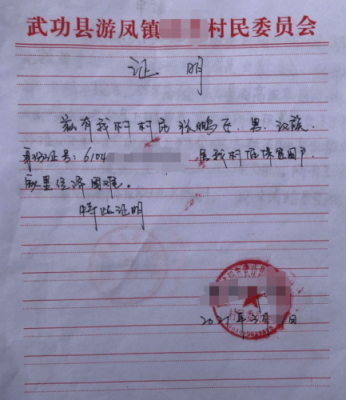 武功县游凤镇 村民委员会
证 明
兹有我村村民张鹏 , 男, 汉族,
身份证号: 6104 是我村 困户
家里经济困难。
特此证明
2021年 月 日